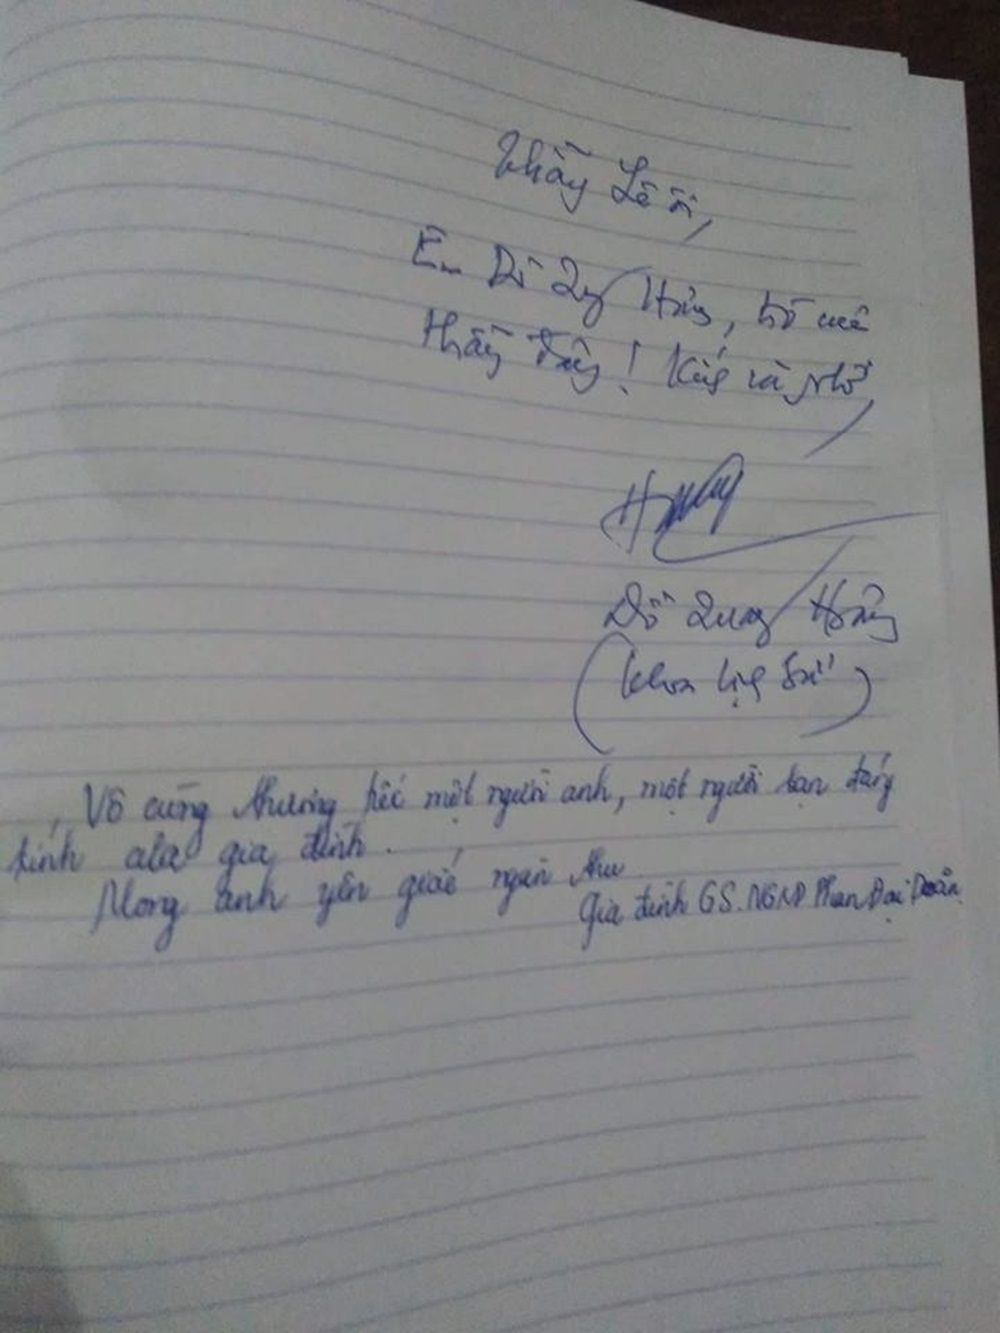 Thầy Lê ơi,
Em Đỗ Quang Hưng,
thầy đây! Kính và nhớ,
Đỗ Quang Hưng
(Khoa Lịch Sử)
Vô cùng thương tiếc một người anh, một người bạn đáng
kính của gia đình.
Mong anh yên giấc ngàn thu
Gia đình GS.NGND Phan Đại Doãn